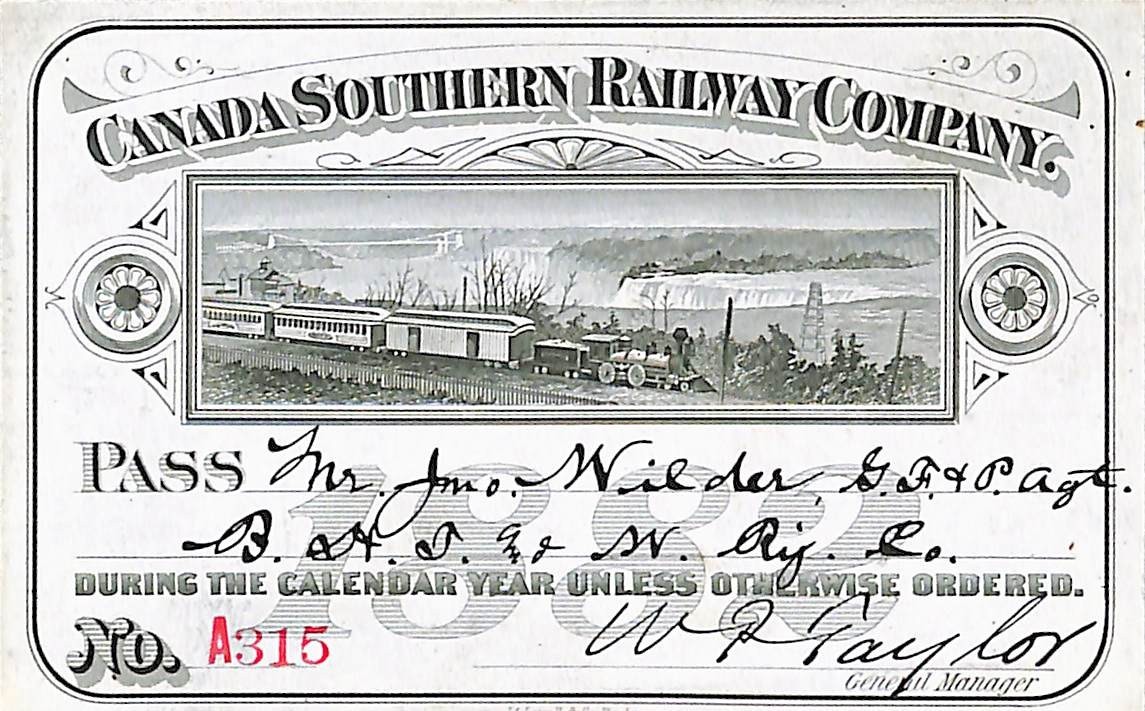 CANADA SOUTHERN RAILWAY COMPANY.
PASS Mr. Jno. Wilder, G. F. & P. Agt.
B. H. T. & W. Ry. Co.
1882
DURING THE CALENDAR YEAR UNLESS OTHERWISE ORDERED.
No. A315
W P Taylor
General Manager